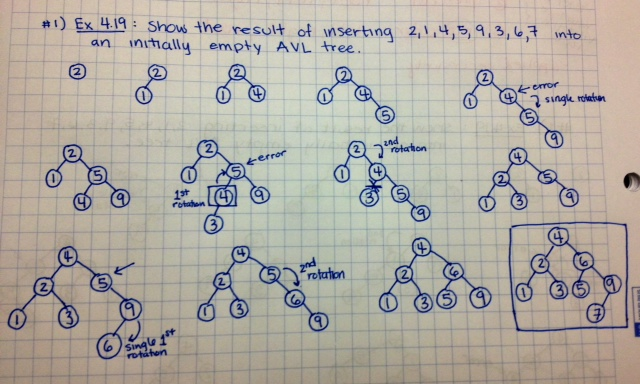 #1) Ex 4.19: Show the result of inserting 2,1,4,5,9,3,6,7 into
an initially empty AVL tree.
2
2
1
2
1 4
2
1 4
5
2
1 4 error
single rotation
5
9
2
1 5
4 9
2
1 5 error
1st
rotation
4 9
3
2
2nd
rotation
1 4
3 5
9
4
2 5
1 3 9
4
2 5
1 3 9
6
single 1st
rotation
4
2 5
2nd
rotation
1 3 6
9
4
2 6
1 3 5 9
4
2 6
1 3 5 9
7